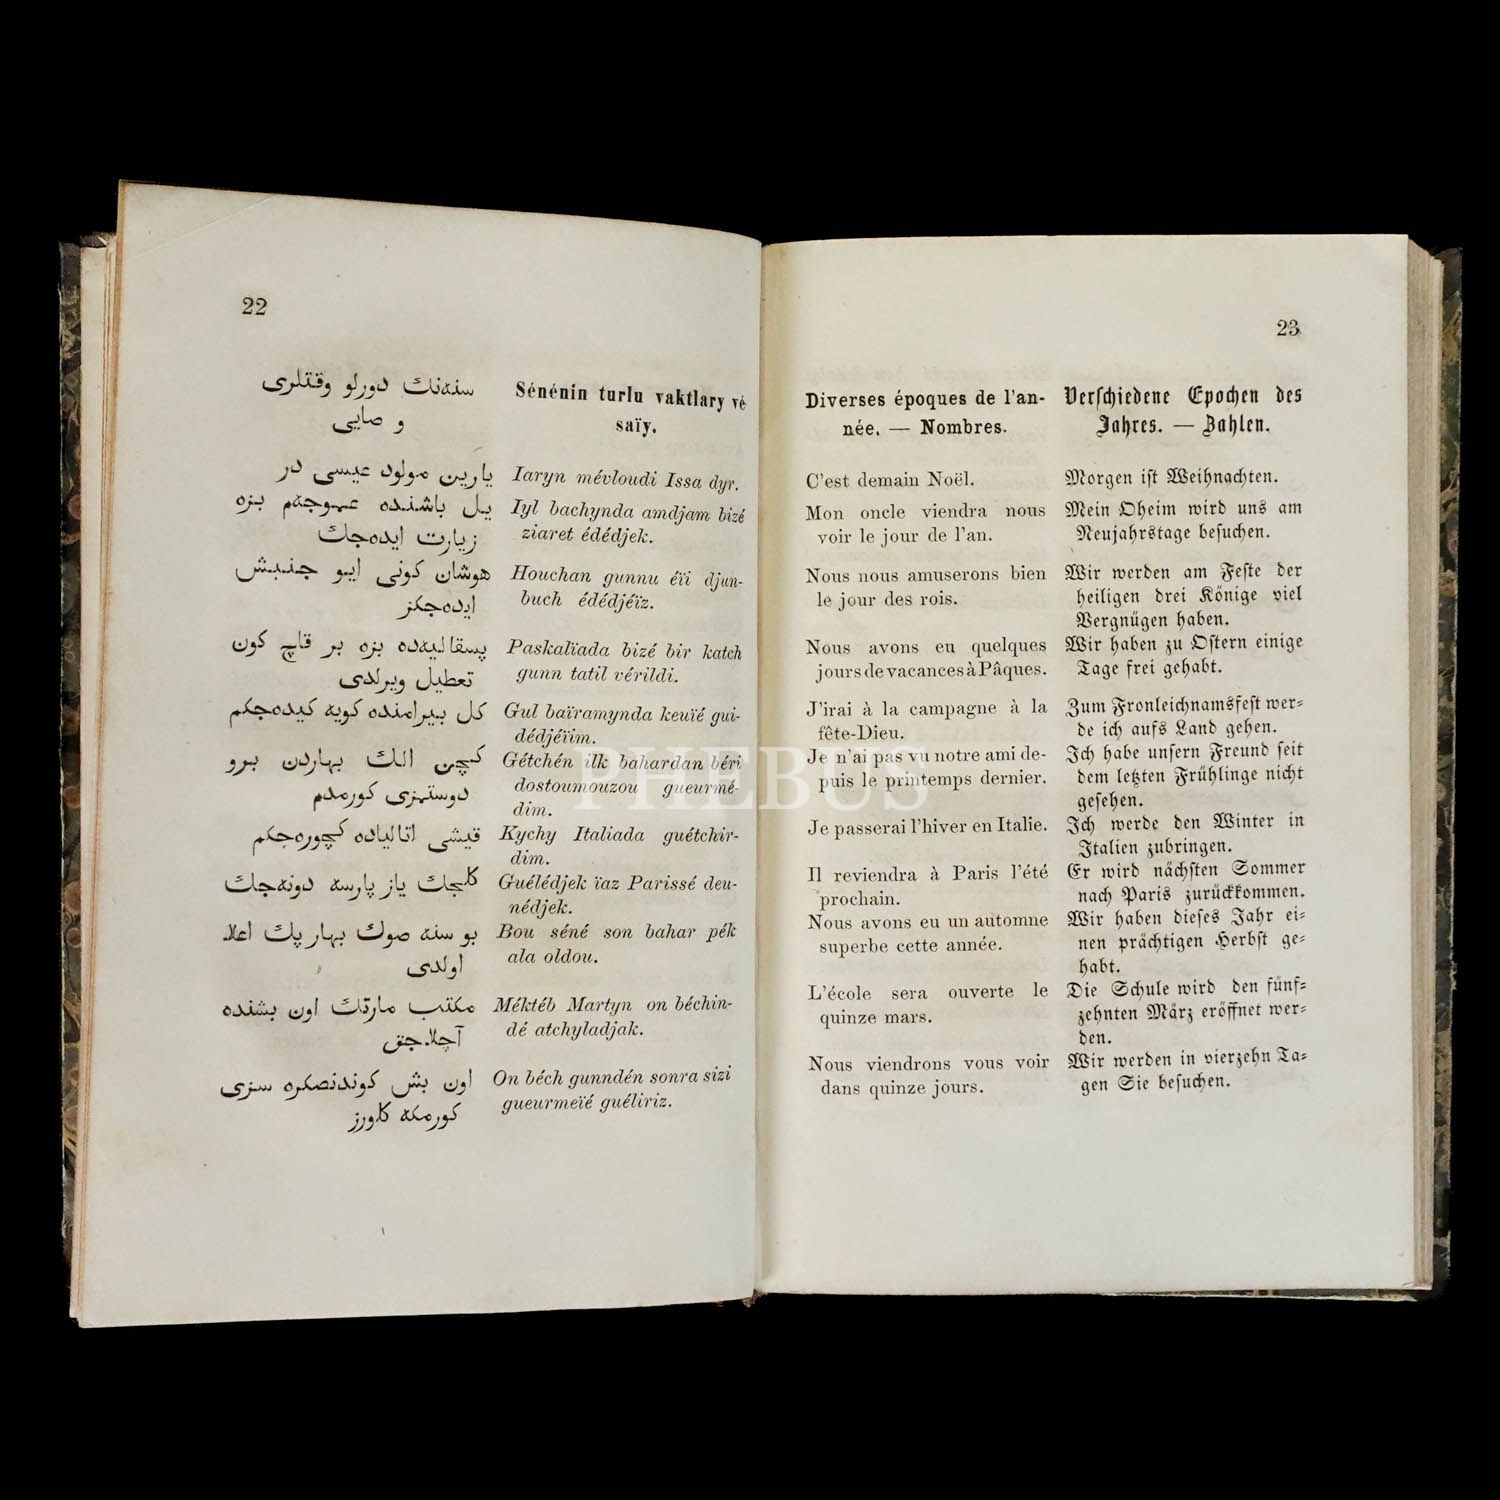 22
سنه‌نڭ دورلو وقتلری
و صایی
یارین مولود عیسی در
یل باشنده عموجه‌م بزه
زیارت ایده‌جك
هوشان کونی ایو جنبش
ایده‌جکز
پسقالیه‌ده بزه بر قاچ کون
تعطیل ویرلدی
کل بیرامنده کویه کیده‌جکم
کچن الك بهاردن برو
دوستمزی کورمدم
قیشی اتالیاده کچوره‌جکم
کلجك یاز پارسه دونه‌جك
بو سنه صوك بهار پك اعلا
اولدی
مکتب مارتك اون بشنده
آچلاجق
اون بش کوندنصکره سزی
کورمکه کلورز
Sénénin turlu vaktlary vé
saïy.
Iaryn mévloudi Issa dyr.
Iyl bachynda amdjam bizé
ziaret édédjek.
Houchan gunnu éïi djun-
buch édédjéïz.
Paskalïada bizé bir katch
gunn tatil vérildi.
Gul baïramynda keuïé gui-
dédjéïim.
Gétchén ilk bahardan béri
dostoumouzou gueurmé-
dim.
Kychy Italiada guétchir-
dim.
Guélédjek ïaz Parissé deu-
nédjek.
Bou séné son bahar pék
ala oldou.
Méktéb Martyn on béchin-
dé atchyladjak.
On béch gunndén sonra sizi
gueurmeïé guéliriz.
23
Diverses époques de l'an-
née. — Nombres.
C'est demain Noël.
Mon oncle viendra nous
voir le jour de l'an.
Nous nous amuserons bien
le jour des rois.
Nous avons eu quelques
jours de vacances à Pâques.
J'irai à la campagne à la
fête-Dieu.
Je n'ai pas vu notre ami de-
puis le printemps dernier.
Je passerai l'hiver en Italie.
Il reviendra à Paris l'été
prochain.
Nous avons eu un automne
superbe cette année.
L'école sera ouverte le
quinze mars.
Nous viendrons vous voir
dans quinze jours.
Verschiedene Epochen des
Jahres. — Zahlen.
Morgen ist Weihnachten.
Mein Oheim wird uns am
Neujahrstage besuchen.
Wir werden am Feste der
heiligen drei Könige viel
Vergnügen haben.
Wir haben zu Ostern einige
Tage frei gehabt.
Zum Fronleichnamsfest wer-
de ich aufs Land gehen.
Ich habe unsern Freund seit
dem letzten Frühlinge nicht
gesehen.
Ich werde den Winter in
Italien zubringen.
Er wird nächsten Sommer
nach Paris zurückkommen.
Wir haben dieses Jahr ei-
nen prächtigen Herbst ge-
habt.
Die Schule wird den fünf-
zehnten März eröffnet wer-
den.
Wir werden in vierzehn Ta-
gen Sie besuchen.
PHEBUS